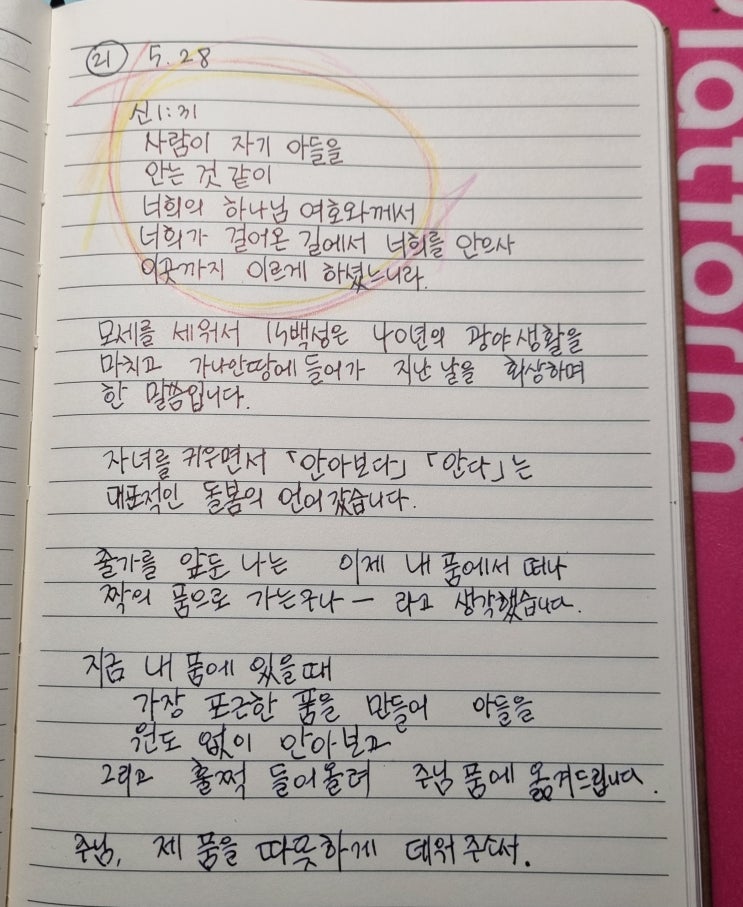 ㉑ 5.28
신1:31
사람이 자기 아들을
안는 것 같이
너희의 하나님 여호와께서
너희가 걸어온 길에서 너희를 안으사
이곳까지 이르게 하셨느니라.
모세를 세워서 백성은 40년의 광야생활을
마치고 가나안땅에 들어가 지난 날을 회상하며
한 말씀입니다.
자녀를 키우면서 「안아보다」 「안다」는
대표적인 돌봄의 언어 같습니다.
출가를 앞둔 나는 이제 내 품에서 떠나
짝의 품으로 가는구나 — 라고 생각했습니다.
지금 내 품에 있을 때
가장 포근한 품을 만들어 아들을
원도 없이 안아보고
그리고 훌쩍 들어올려 주님 품에 옮겨드립니다.
주님, 제 품을 따뜻하게 데워 주소서.
platform